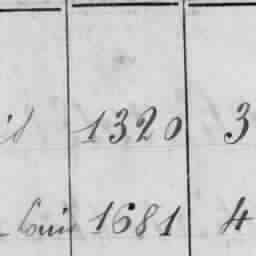 1320 3
1681 4